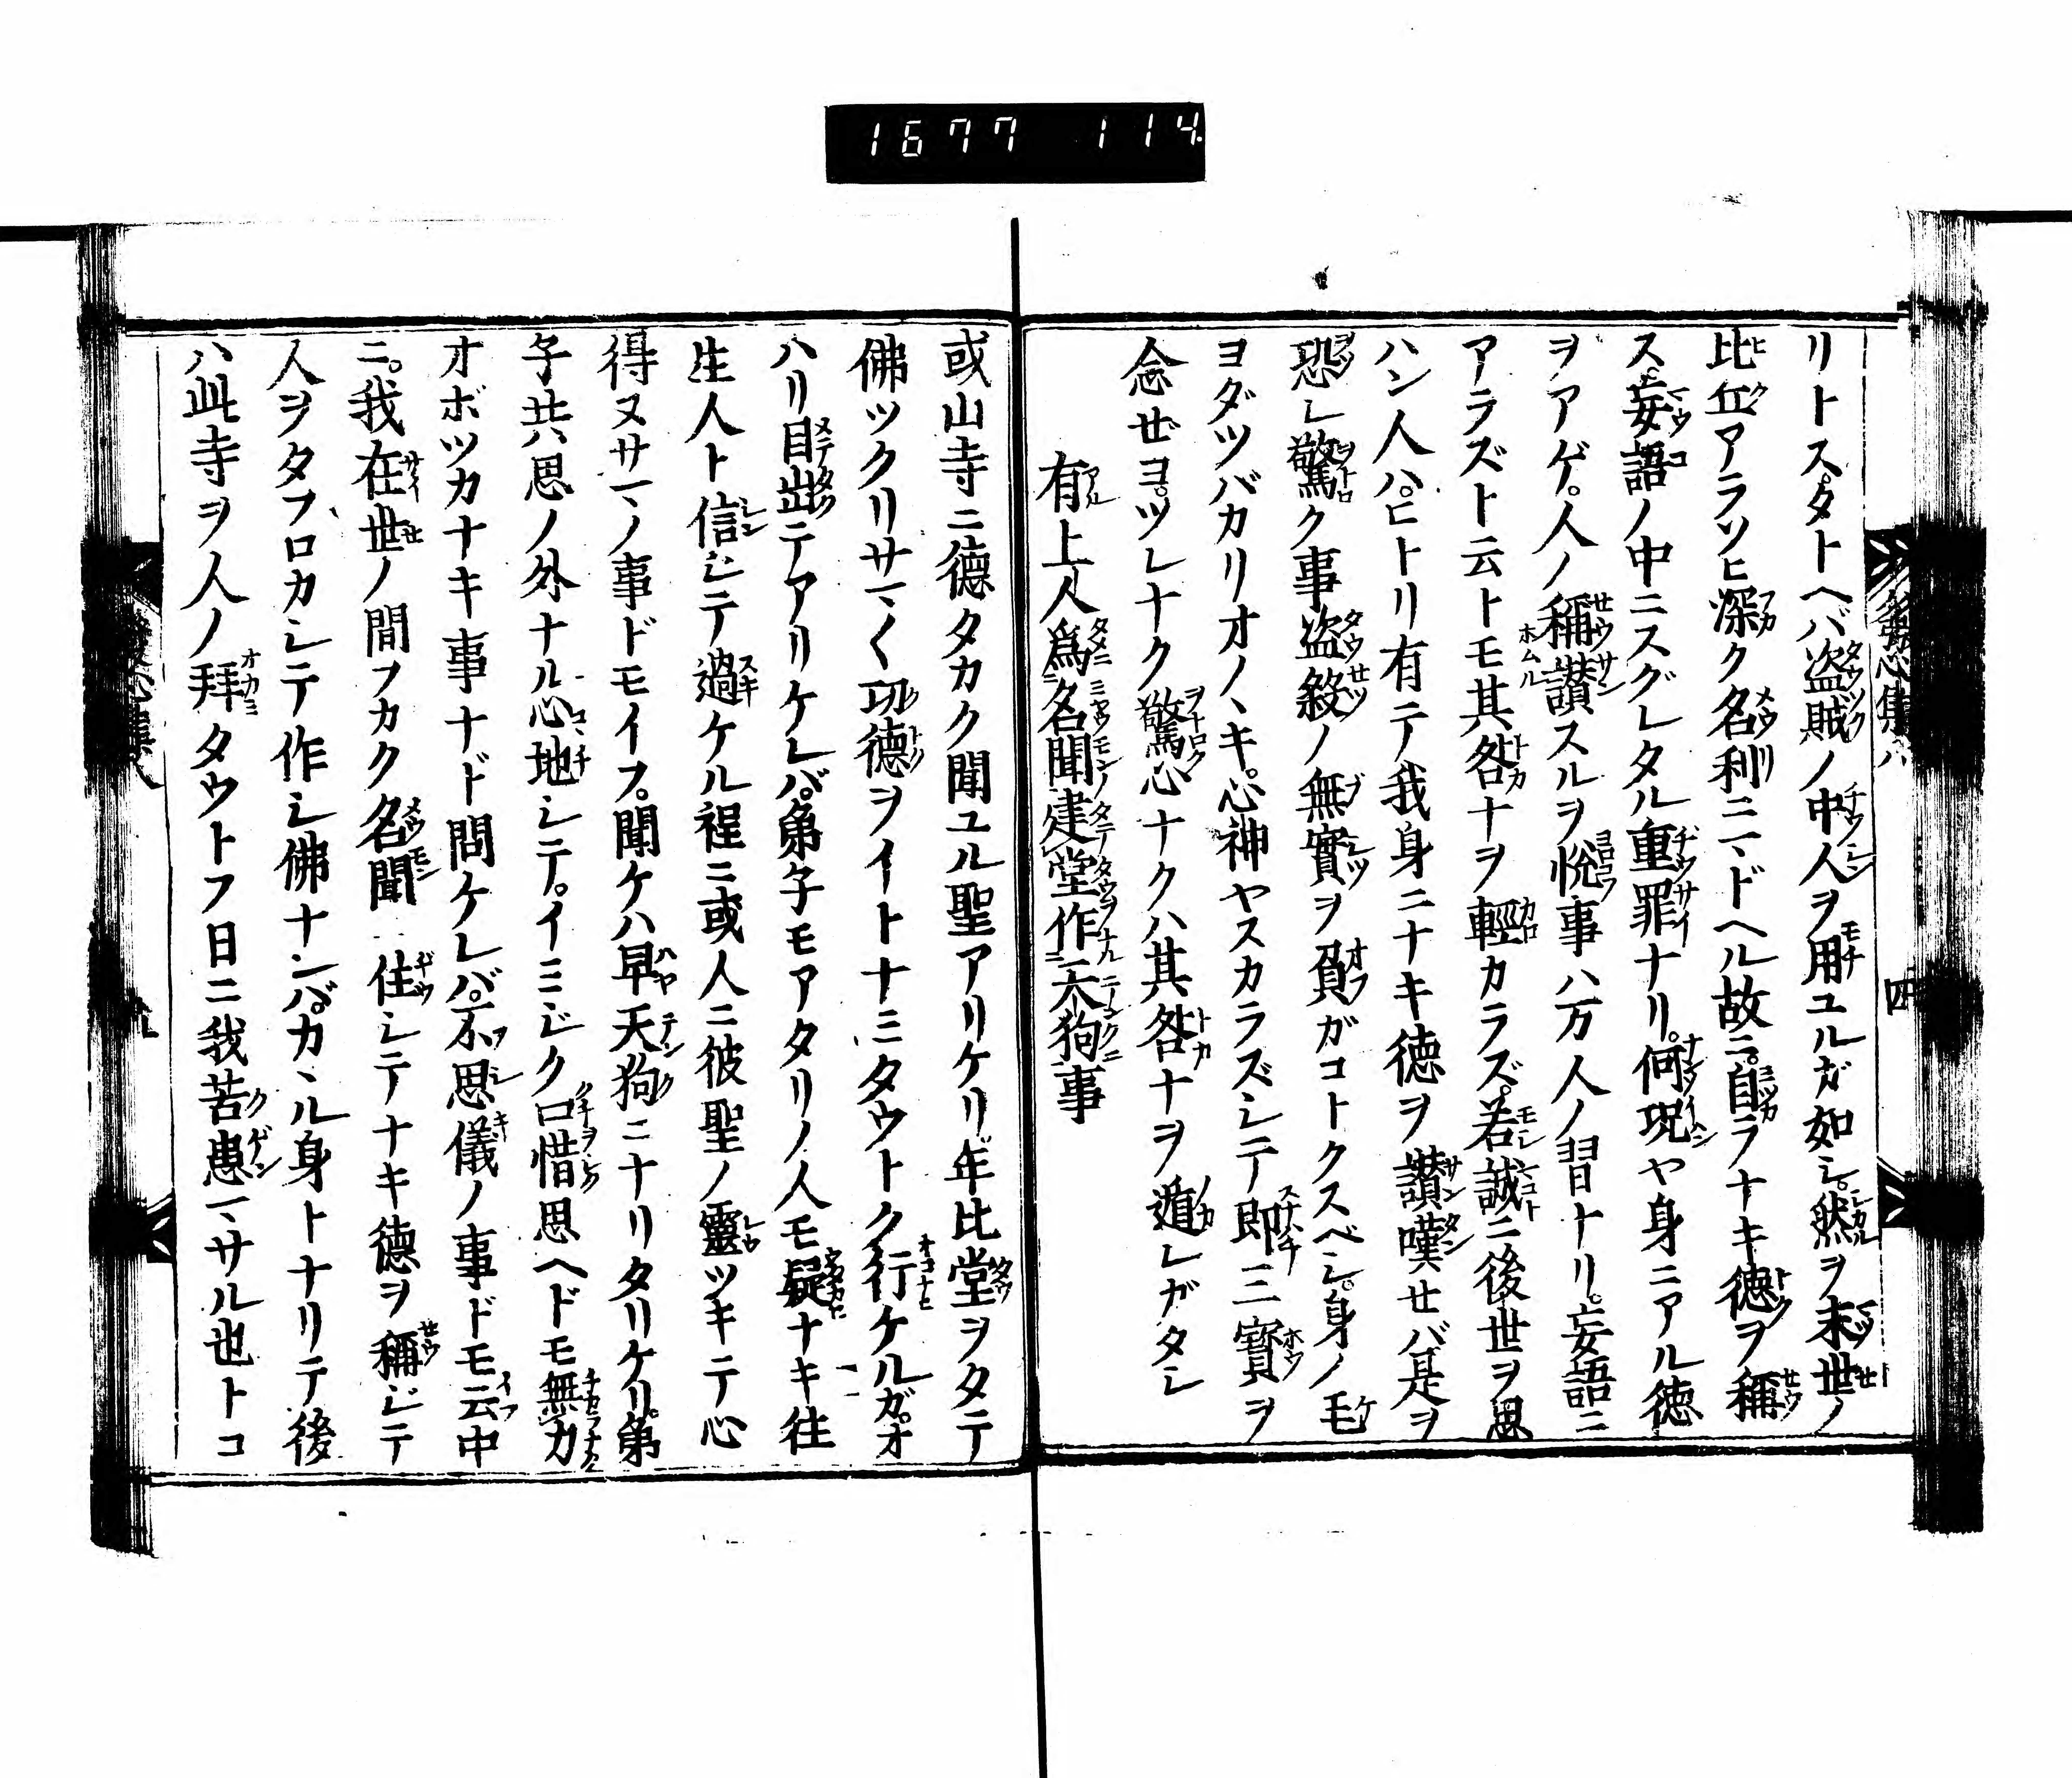 1677 114
リトス。タトヘバ盗賊ノ中人ヲ用ユルガ如シ。然ヲ末世ノ
比丘アラソヒ深ク名利ニマドヘル故ニ。自ラナキ徳ヲ稱
ス。妄語ノ中ニスグレタル重罪ナリ。何況ヤ身ニアル徳
ヲアゲ。人ノ稱讃スルヲ悅事ハ万人ノ習ナリ。妄語ニ
アラズト云トモ其咎ナヲ輕カラズ。若誠ニ後世ヲ思
ハン人ハ。ヒトリ有テ我身ニナキ徳ヲ讃嘆セバ是ヲ
恐レ驚ク事盗殺ノ無實ヲ負ガコトクスベシ。身ノ毛
ヨダツバカリオノヽキ。心神ヤスカラズシテ即三寳ヲ
念ゼヨ。ツレナク驚心ナクハ其咎ナヲ遁レガタシ
有上人爲名聞建堂作天狗事
或山寺ニ德タカク聞ユル聖アリケリ年比堂ヲタテ
佛ツクリサマ〱功德ヲイトナミタウトク行ケルガ。オ
ハリ目出テアリケレバ。弟子モアタリノ人モ疑ナキ往
生人ト信ジテ過ケル程ニ或人ニ彼聖ノ靈ツキテ心
得ヌサマノ事ドモイフ。聞ケハ早天狗ニナリタリケリ。弟
子共思ノ外ナル心地シテ。イミジク口惜思ヘドモ無力
オボツカナキ事ナド問ケレバ。不思儀ノ事ドモ云中
ニ。我在世ノ間フカク名聞ニ住シテナキ德ヲ稱ジテ
人ヲタフロカシテ作シ佛ナレバ。カヽル身トナリテ後
ハ此寺ヲ人ノ拜タウトフ日ニ我苦患マサル也トコ
發心集八
四